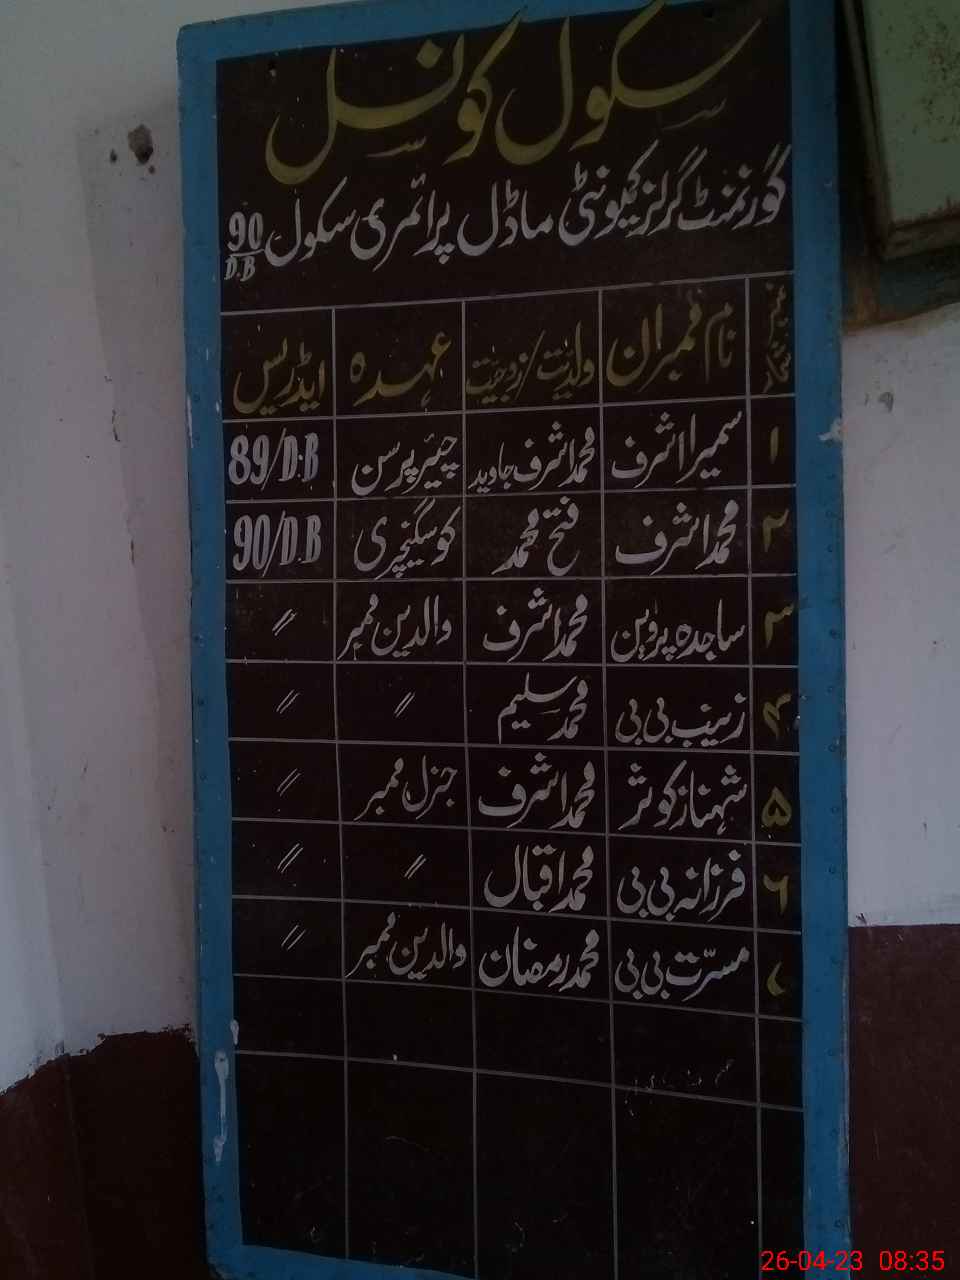 سکول کونسل
گورنمنٹ گرلز کمیونٹی ماڈل پرائمری سکول 90/D.B
نمبر شمار نام ممبران ولدیت/زوجیت عہدہ ایڈریس
۱ سمیرا اشرف محمد اشرف جاوید چیئر پرسن 89/D.B
۲ محمد اشرف فتح محمد کوسگنیچری 90/D.B
۳ ساجدہ پروین محمد اشرف والدین ممبر 〃
۴ زینب بی بی محمد سلیم 〃 〃
۵ شہناز کوثر محمد اشرف جنرل ممبر 〃
۶ فرزانہ بی بی محمد اقبال 〃 〃
۷ مسرّت بی بی محمد رمضان والدین ممبر 〃
26-04-23 08:35